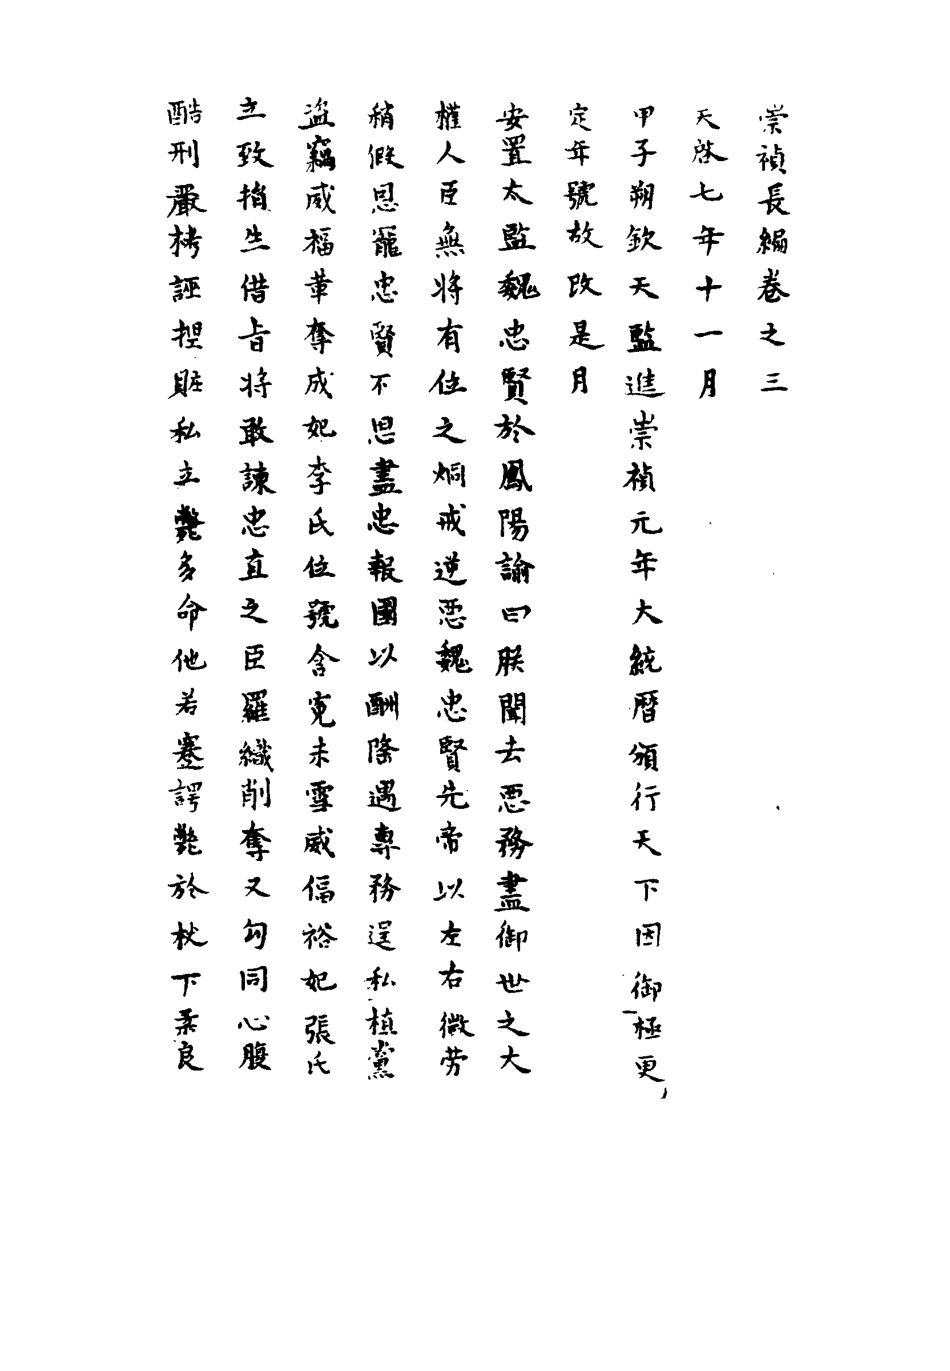 崇禎長編卷之三
天啓七年十一月
甲子朔欽天監進崇禎元年大統曆頒行天下因御極更
定年號故改是月
安置太監魏忠賢於鳳陽諭曰朕聞去惡務盡御世之大
權人臣無將有位之炯戒逆惡魏忠賢先帝以左右微劳
稍假恩寵忠賢不思盡忠報國以酬隆遇專務逞私植黨
盗竊威福革奪成妃李氏位號含寃未雪威偪裕妃張氏
立致捐生借旨將敢諫忠直之臣羅織削奪又勾同心腹
酷刑嚴拷誣揑賍私立斃多命他若蹇諤斃於杖下柔良